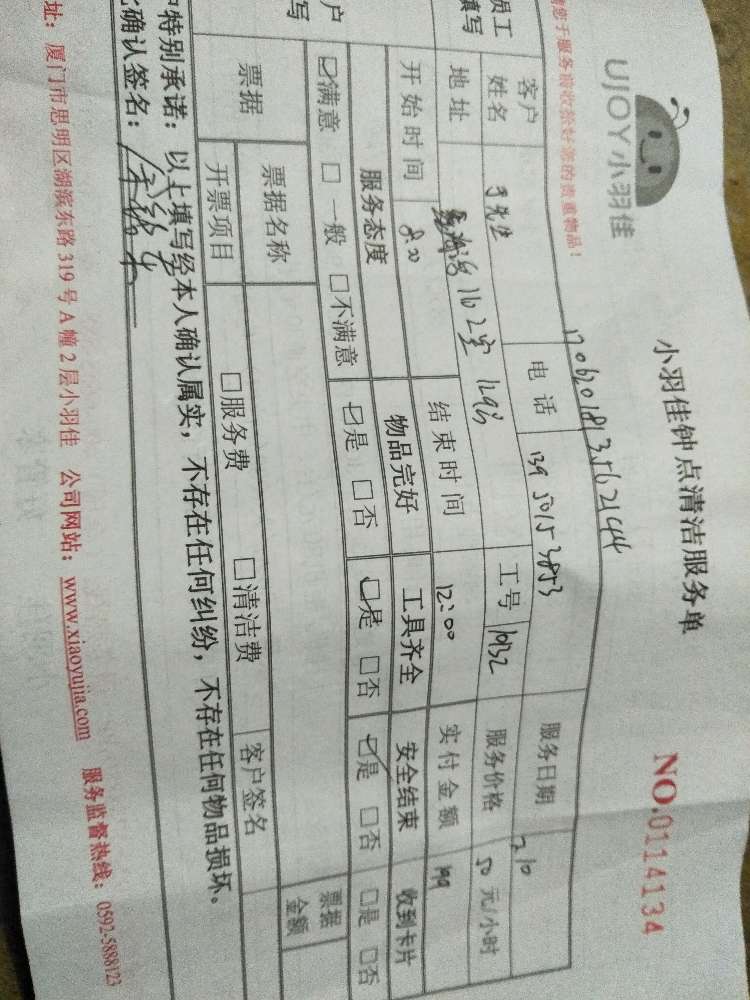 UJOY小羽佳
小羽佳钟点清洁服务单
NO.0114134
请您于服务前收拾好您的贵重物品！
1706201813562144
员工
填写
客户
姓名
电话
139 5015 3853
服务日期
210
地址
1102室
工号
1932
服务价格
50 元/小时
开始时间
8:00
结束时间
12:00
实付金额
199
户
写
服务态度
物品完好
工具齐全
安全结束
收到卡片
☑满意 □一般 □不满意
☑是 □否
☑是 □否
☑是 □否
□是 □否
票据
票据名称
票据
金额
开票项目
□服务费 □清洁费
客户签名
特别承诺：以上填写经本人确认属实，不存在任何纠纷，不存在任何物品损坏。
确认签名：
址：厦门市思明区湖滨东路319号A幢2层小羽佳 公司网站：www.xiaoyujia.com 服务监督热线：0592-5888123